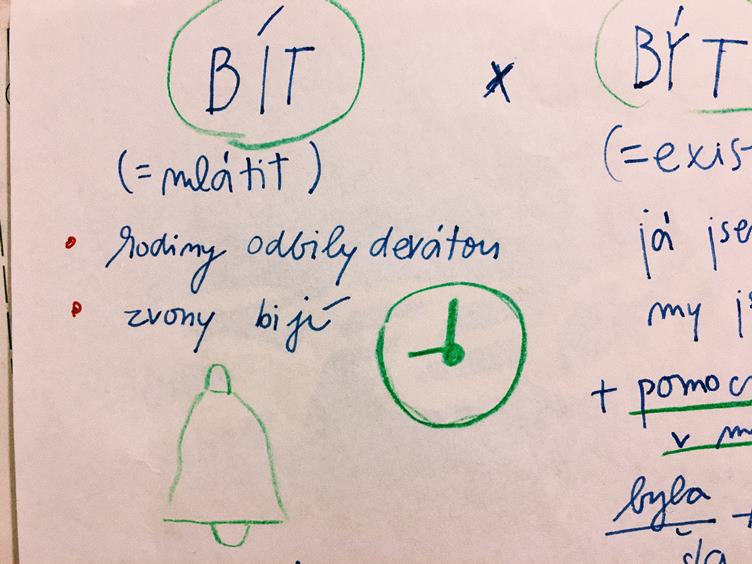 BÍT x BÝT
(= mlátit)
hodiny odbily devátou
zvony bijí
(=exis
já jse
my js
+ pomoc
v m
byla +